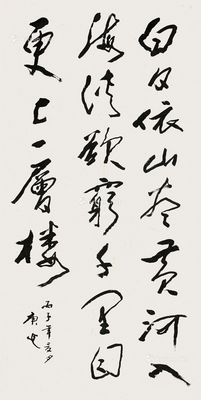 白日依山尽黄河入
海流欲窮千里目
更上一層楼
丙子年夏月